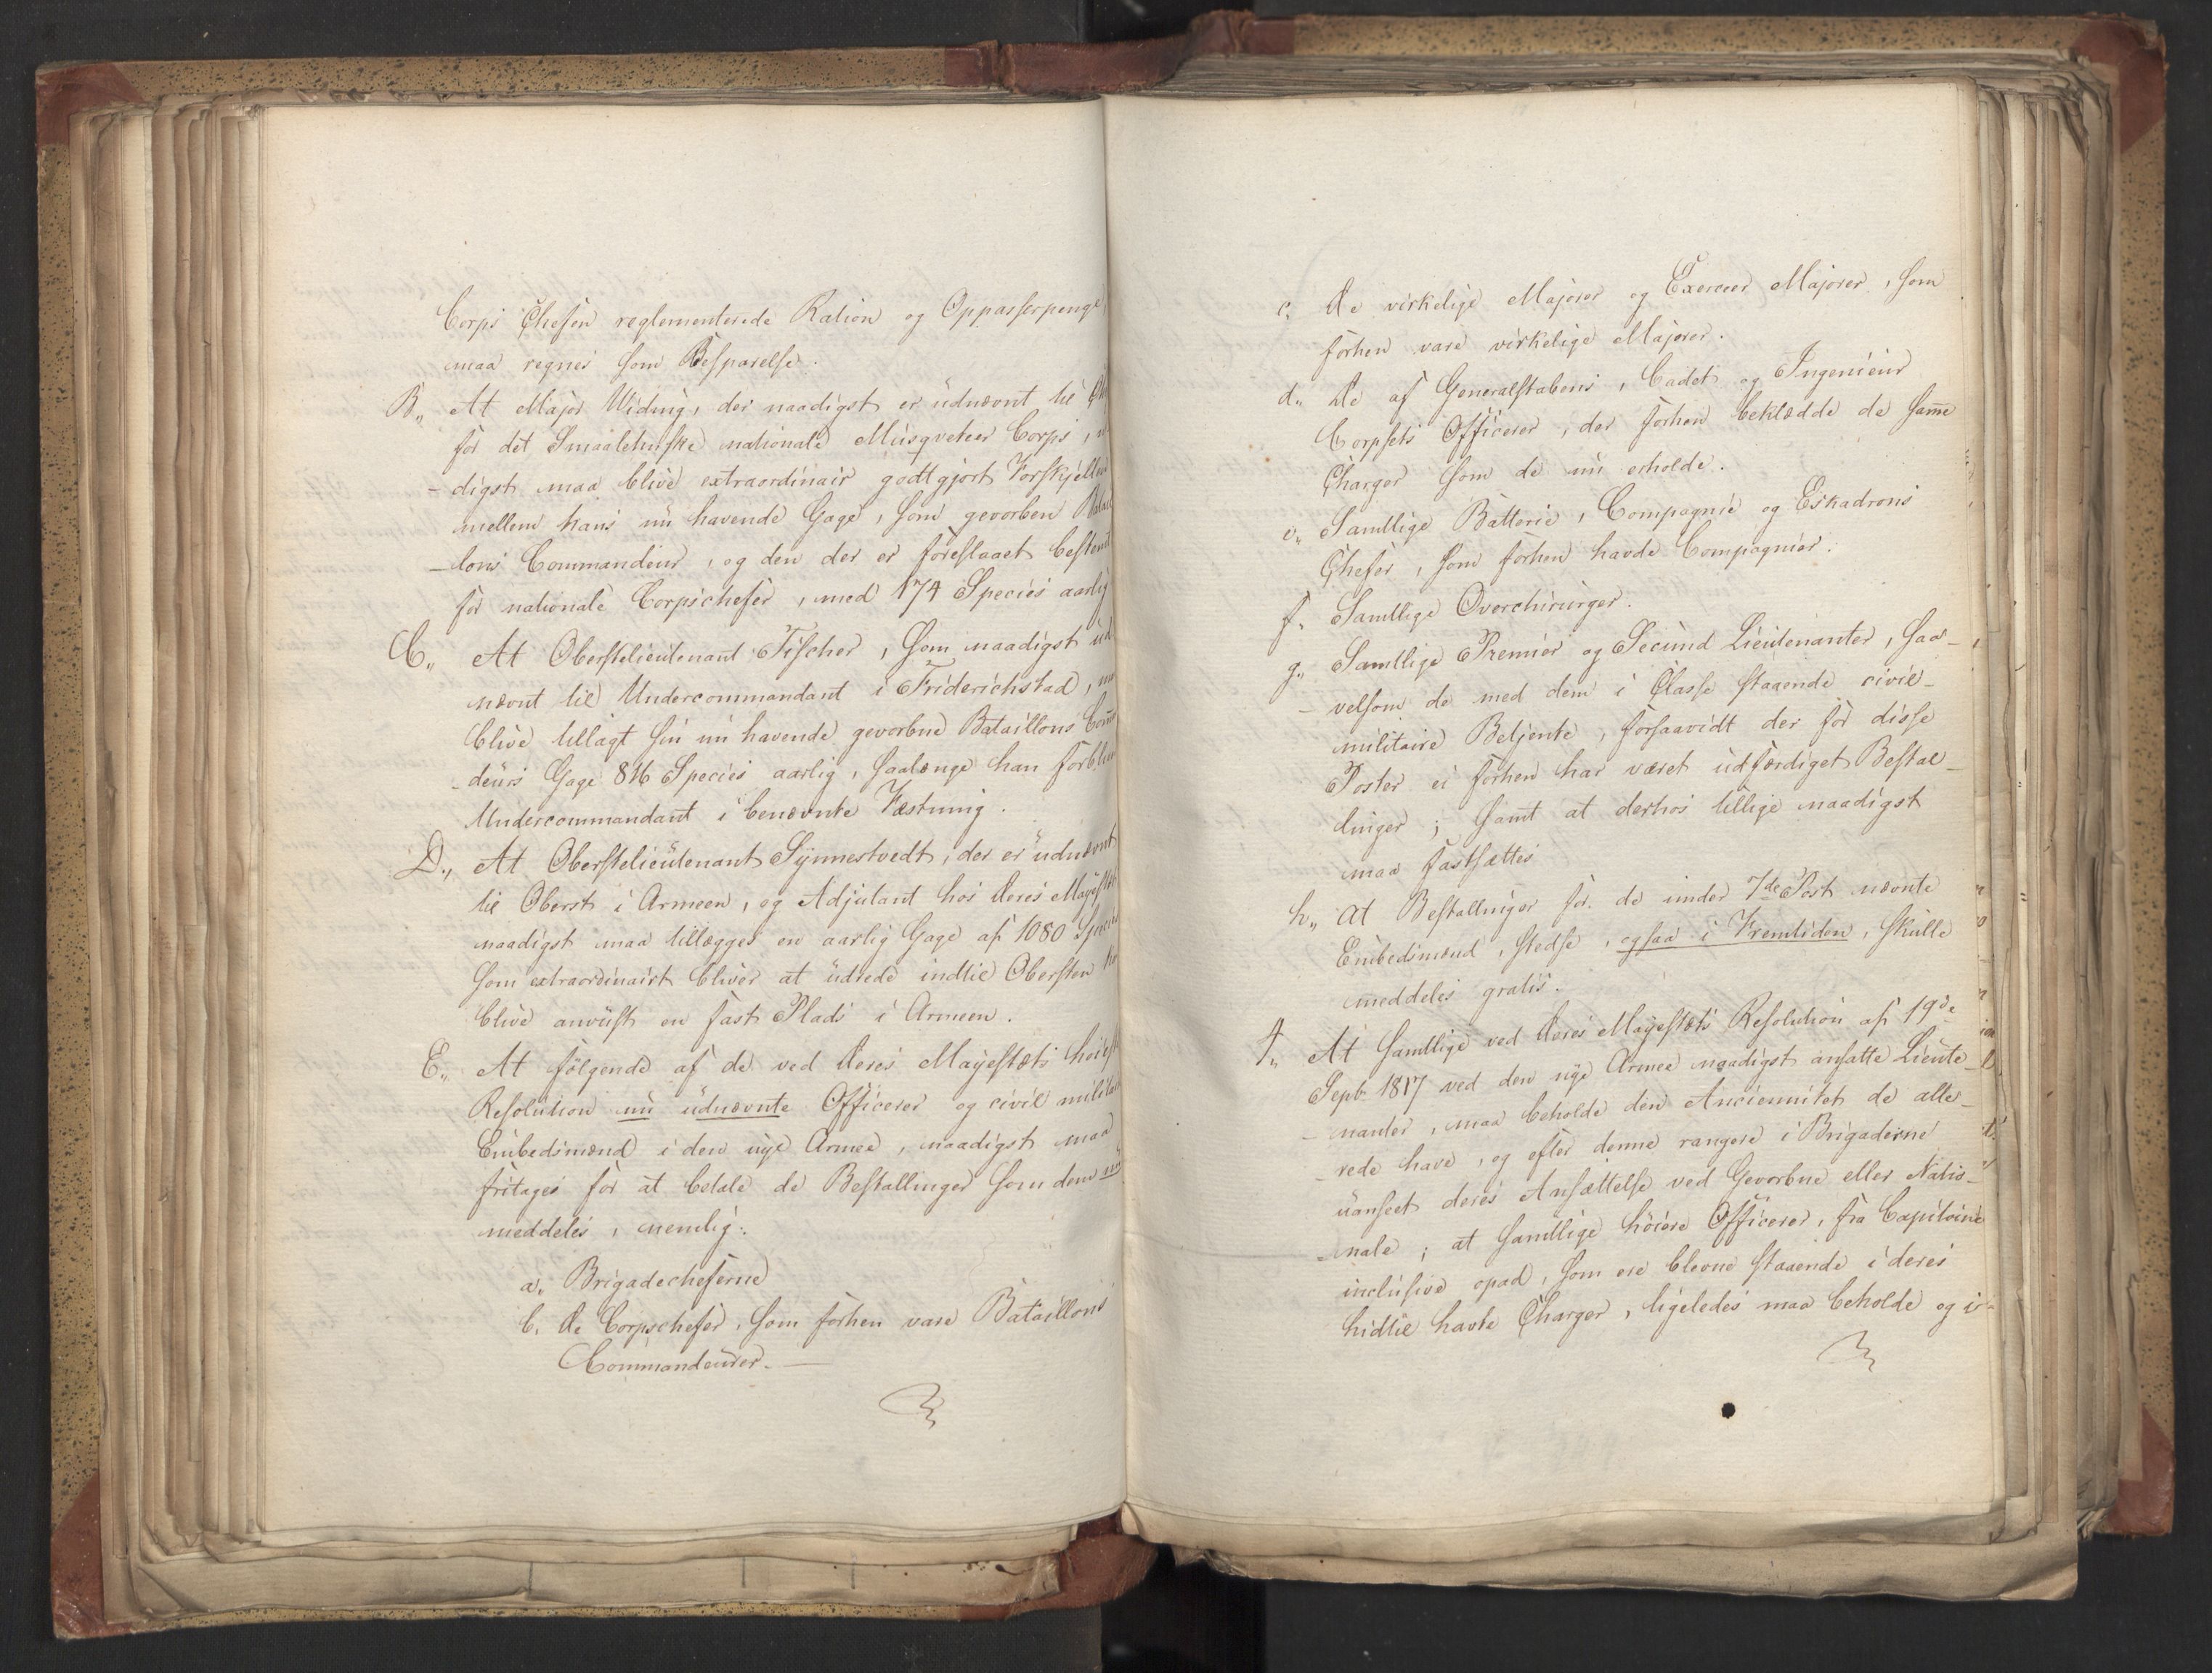 Corps Chefen reglementerede Ration og Oppasserpenge
maa regnes som Besparelse.
B,, At Major Wiving, der naadigst er udnævnt til
for det Smaalehnske nationale Musqveteer Corps,
-digst maa blive extraordinair godtgjort Forskjellen
mellem hans nu havende Gage, som gevorben
-lons Commandeur, og den der er foreslaaet bestemt
for nationale Corpschefer, med 174 Species aarlig
C,, At Oberstelieutenant Fischer, som naadigst ud
nævnt til Undercommandant i Friderichstad,
blive tillagt sin nu havende gevorbne Bataillons
-deurs Gage 816 Species aarlig, saalænge han
Undercommandant i benævnte Fæstning.
D,, At Oberstelieutenant Synnestvedt, der er udnævnt
til Oberst i Armeen, og Adjutant hos Deres
naadigst maa tillægges en aarlig Gage af 1080
som extraordinairt bliver at udrede indtil Obersten
blive anviist en fast Plads i Armeen.
E,, At følgende af de ved Deres Majestæts
Resolution nu udnævnte Officerer og civil
Embedsmænd i den nye Armee, naadigst maa
fritages for at betale de Bestallinger som dem nu
meddeles, nemlig:
a,, Brigadecheferne
b, De Corpschefer, som forhen vare Bataillons
Commandeurer. —
c, De virkelige Majorer og Exerceer Majorer, som
forhen vare virkelige Majorer.
d,, De af Generalstabens, Cadet og Ingenieur
Corpsets Officerer, der forhen beklædde de samme
Charger som de nu erholde.
e,, Samtlige Batterie, Compagnie og Eskadrons
Chefer, som forhen havde Compagnier.
f. Samtlige Overchirurger.
g,, Samtlige Premier og Secund Lieutenanter, saa-
-velsom de med dem i Classe staaende civil-
militaire Betjente, forsaavidt der for disse
Poster ei forhen har været udfærdiget Bestal-
linger; samt at derhos tillige naadigst
maa fastsættes
h,, at Bestallinger for de under 7de Post nævnte
Embedsmænd, stedse, ogsaa i Fremtiden, skulle
meddeles gratis.
At samtlige ved Deres Majestæts Resolution af 19de
Septr 1817 ved den nye Armee naadigst ansatte Lieute-
-nanter, maa beholde den Anciennitet de alle-
-rede have, og efter denne rangere i Brigaderne
uanseet deres Ansættelse ved Gevorbne eller Natio-
-nale; at samtlige høiere Officerer, fra Capitaine
inclusive opad, som ere blevne staaende i deres
hidtil havte Charger, ligeledes maa beholde og i-